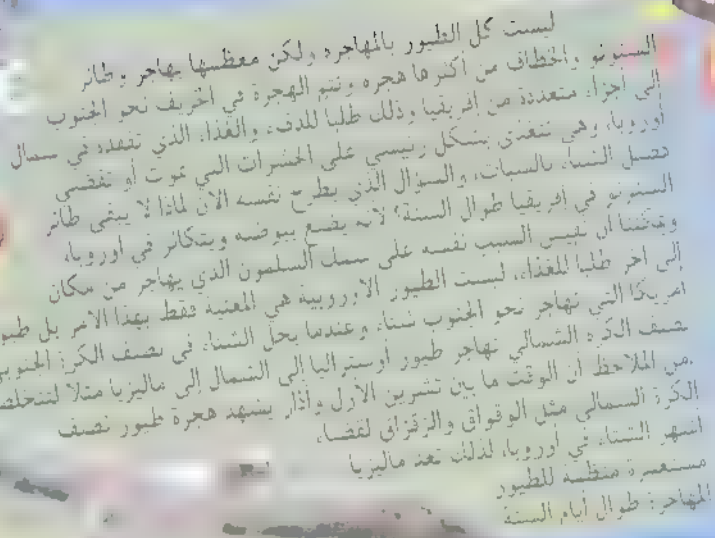 ليست كل الطيور بالمهاجره ولكن معظمها يهاجر وطائر
السنونو والخطاف من أكثرها هجره وتتم الهجرة في الخريف نحو الجنوب
إلى أجزاء متعددة من افريقيا وذلك طلبا للدفء والغذاء الذي تفقده في شمال
أوروبا، وهي تتغذى بشكل رئيسي على الحشرات التي تموت أو تقضي
فصل الشتاء بالسبات، والسؤال الذي يطرح نفسه الآن لماذا لا يبقى طائر
السنونو في افريقيا طوال السنة؟ لأنه يضع بيوضه ويتكاثر في أوروبا،
ويمكننا أن نقيس السبب نفسه على سمك السلمون الذي يهاجر من مكان
إلى اخر طلبا للغذاء، ليست الطيور الأوروبية هي المعنية فقط بهذا الأمر بل طيو
امريكا التي تهاجر نحو الجنوب شتاء وعندما يحل الشتاء في نصف الكرة الجنوبي
نصف الكره الشمالي تهاجر طيور أوستراليا إلى الشمال إلى ماليزيا مثلا لتتخلص
من الملاحظ أن الوقت ما بين تشرين الأول وآذار يشهد هجرة طيور نصف
الكرة الشمالي مثل الوقواق والزقزاق لقضاء
أشهر الشتاء في أوروبا، لذلك تعد ماليزيا
مستعمرة منظمة للطيور
المهاجرة طوال أيام السنة